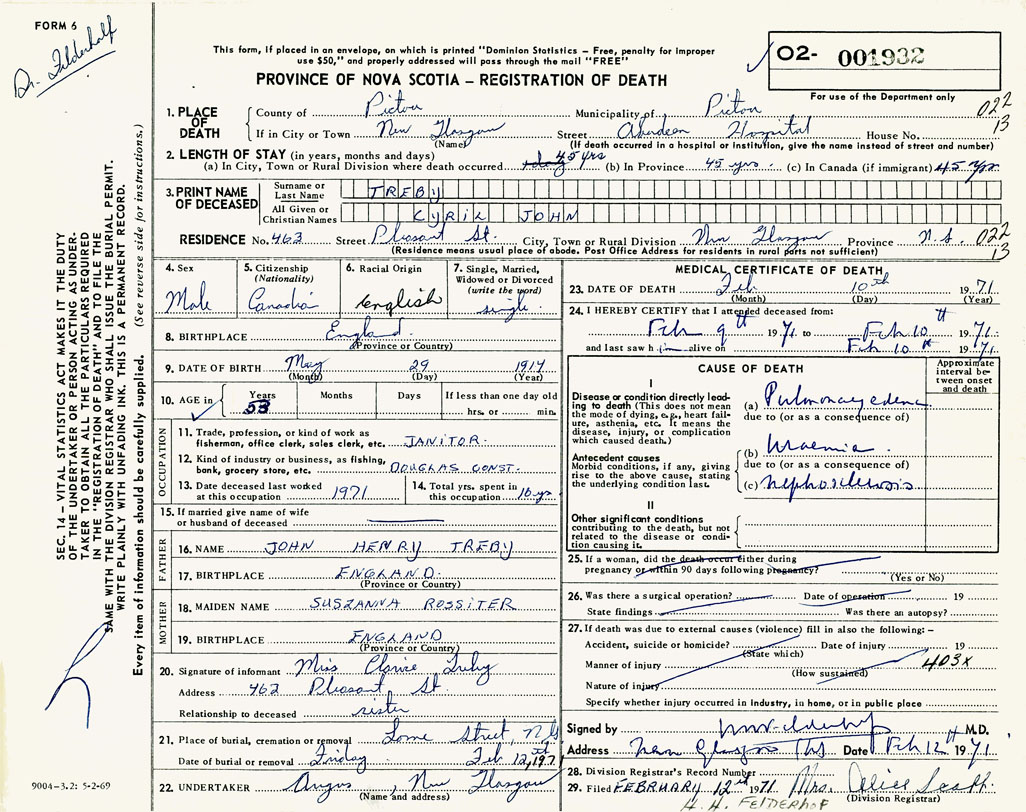 FORM 6
Dr. Felderhof
This form, if placed in an envelope, on which is printed "Dominion Statistics – Free, penalty for improper
use $50," and properly addressed will pass through the mail "FREE"
PROVINCE OF NOVA SCOTIA – REGISTRATION OF DEATH
02- 001932
For use of the Department only
022
13
1. PLACE OF DEATH
County of Pictou Municipality of Pictou
If in City or Town New Glasgow Street Aberdeen Hospital House No.
(Name) (If death occurred in a hospital or institution, give the name instead of street and number)
2. LENGTH OF STAY (in years, months and days)
(a) In City, Town or Rural Division where death occurred 45 yrs (b) In Province 45 yrs. (c) In Canada (if immigrant) 45 yrs.
3. PRINT NAME OF DECEASED
Surname or Last Name TREBY
All Given or Christian Names CYRIL JOHN
RESIDENCE No. 463 Street Pleasant St. City, Town or Rural Division New Glasgow Province N.S. 022
13
(Residence means usual place of abode. Post Office Address for residents in rural parts not sufficient)
4. Sex
Male
5. Citizenship
(Nationality)
Canadian
6. Racial Origin
English
7. Single, Married,
Widowed or Divorced
(write the word)
single
8. BIRTHPLACE England
(Province or Country)
9. DATE OF BIRTH May 29 1917
(Month) (Day) (Year)
10. AGE in Years Months Days If less than one day old
53 hrs. or min.
OCCUPATION
11. Trade, profession, or kind of work as
fisherman, office clerk, sales clerk, etc. JANITOR.
12. Kind of industry or business, as fishing,
bank, grocery store, etc. DOUGLAS CONST.
13. Date deceased last worked
at this occupation 1971
14. Total yrs. spent in
this occupation 16 yrs
15. If married give name of wife
or husband of deceased
FATHER
16. NAME JOHN HENRY TREBY
17. BIRTHPLACE ENGLAND.
(Province or Country)
MOTHER
18. MAIDEN NAME SUSZANNA ROSSITER
19. BIRTHPLACE ENGLAND
(Province or Country)
20. Signature of informant Miss Clarice Treby
Address 462 Pleasant St.
Relationship to deceased sister
21. Place of burial, cremation or removal Lorne Street, N.G.
Date of burial or removal Friday Feb 12th, 1971
22. UNDERTAKER Angus, New Glasgow
(Name and address)
MEDICAL CERTIFICATE OF DEATH
23. DATE OF DEATH Feb 10th 1971
(Month) (Day) (Year)
24. I HEREBY CERTIFY that I attended deceased from:
Feb 9th 1971 to Feb 10th 1971
and last saw him alive on Feb 10th 1971
CAUSE OF DEATH
Approximate
interval be-
tween onset
and death
I
Disease or condition directly lead-
ing to death (This does not
mean the mode of dying, e.g., heart failure, asthenia, etc. It means the
disease, injury, or complication
which caused death.)
(a) Pulmonary edema
due to (or as a consequence of)
Antecedent causes
Morbid conditions, if any, giving
rise to the above cause, stating
the underlying condition last.
(b) Uraemia
due to (or as a consequence of)
(c) nephrosclerosis
II
Other significant conditions
contributing to the death, but not
related to the disease or condi-
tion causing it.
25. If a woman, did the death occur either during
pregnancy or within 90 days following pregnancy?
(Yes or No)
26. Was there a surgical operation? Date of operation 19
State findings Was there an autopsy?
27. If death was due to external causes (violence) fill in also the following:–
Accident, suicide or homicide? Date of injury 19
(State which)
403X
Manner of injury
(How sustained)
Nature of injury
Specify whether injury occurred in Industry, in home, or in public place
Signed by M.D.
Address New Glasgow NS Date Feb 12th 1971
28. Division Registrar's Record Number
29. Filed FEBRUARY 12th 1971 Mrs. Alice Scott.
(Division Registrar)
H. H. FELDERHOF
SEC. 14 – VITAL STATISTICS ACT MAKES IT THE DUTY
OF THE UNDERTAKER OR PERSON ACTING AS UNDER-
TAKER TO OBTAIN ALL THE PARTICULARS REQUIRED
IN THE "REGISTRATION OF DEATH" AND TO FILE THE
SAME WITH THE DIVISION REGISTRAR WHO SHALL ISSUE THE BURIAL PERMIT.
WRITE PLAINLY WITH UNFADING INK. THIS IS A PERMANENT RECORD.
Every item of information should be carefully supplied. (See reverse side for instructions.)
9004-3.2: 5-2-69